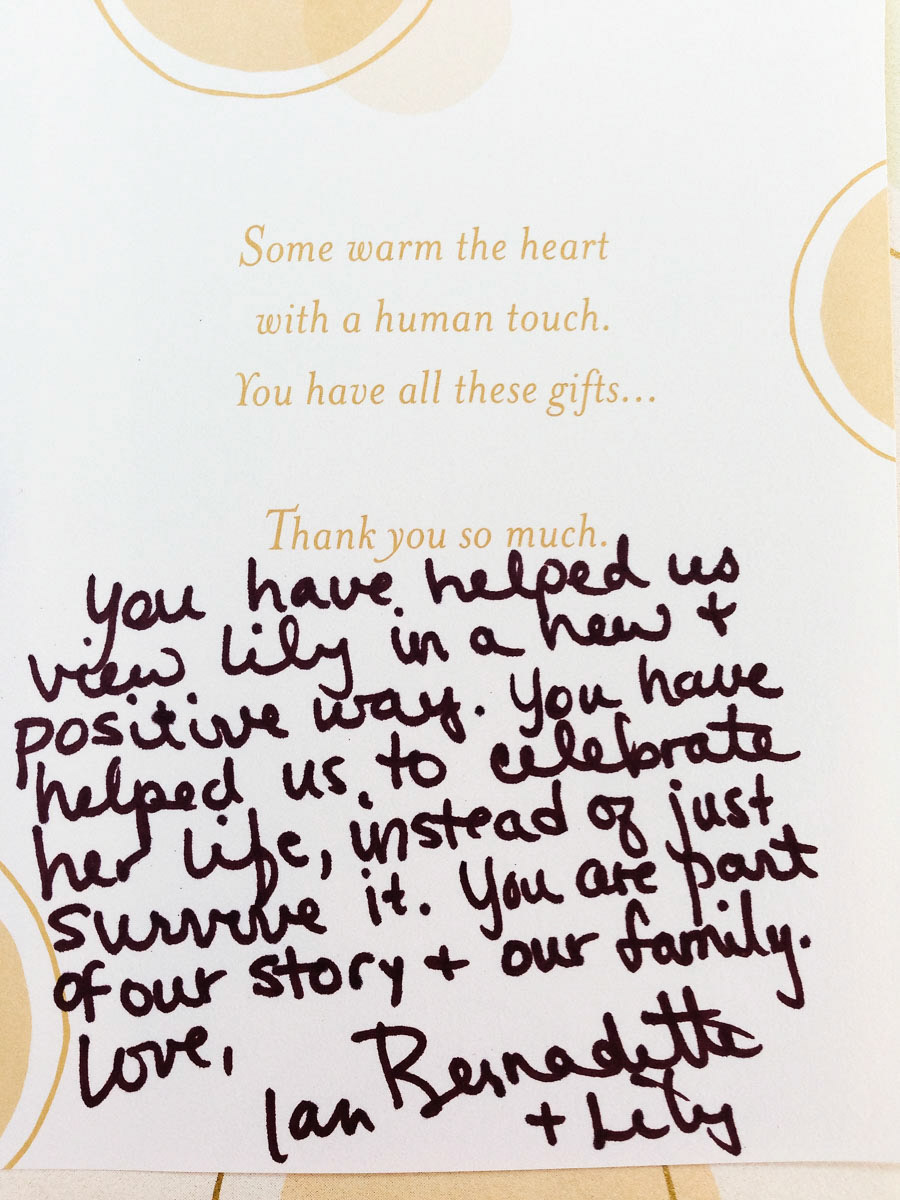 Some warm the heart
with a human touch.
You have all these gifts...
Thank you so much.
You have helped us
view Lily in a new +
positive way. You have
helped us to celebrate
her life, instead of just
survive it. You are part
of our story + our family.
Love,
Ian Bernadette
+ Lily